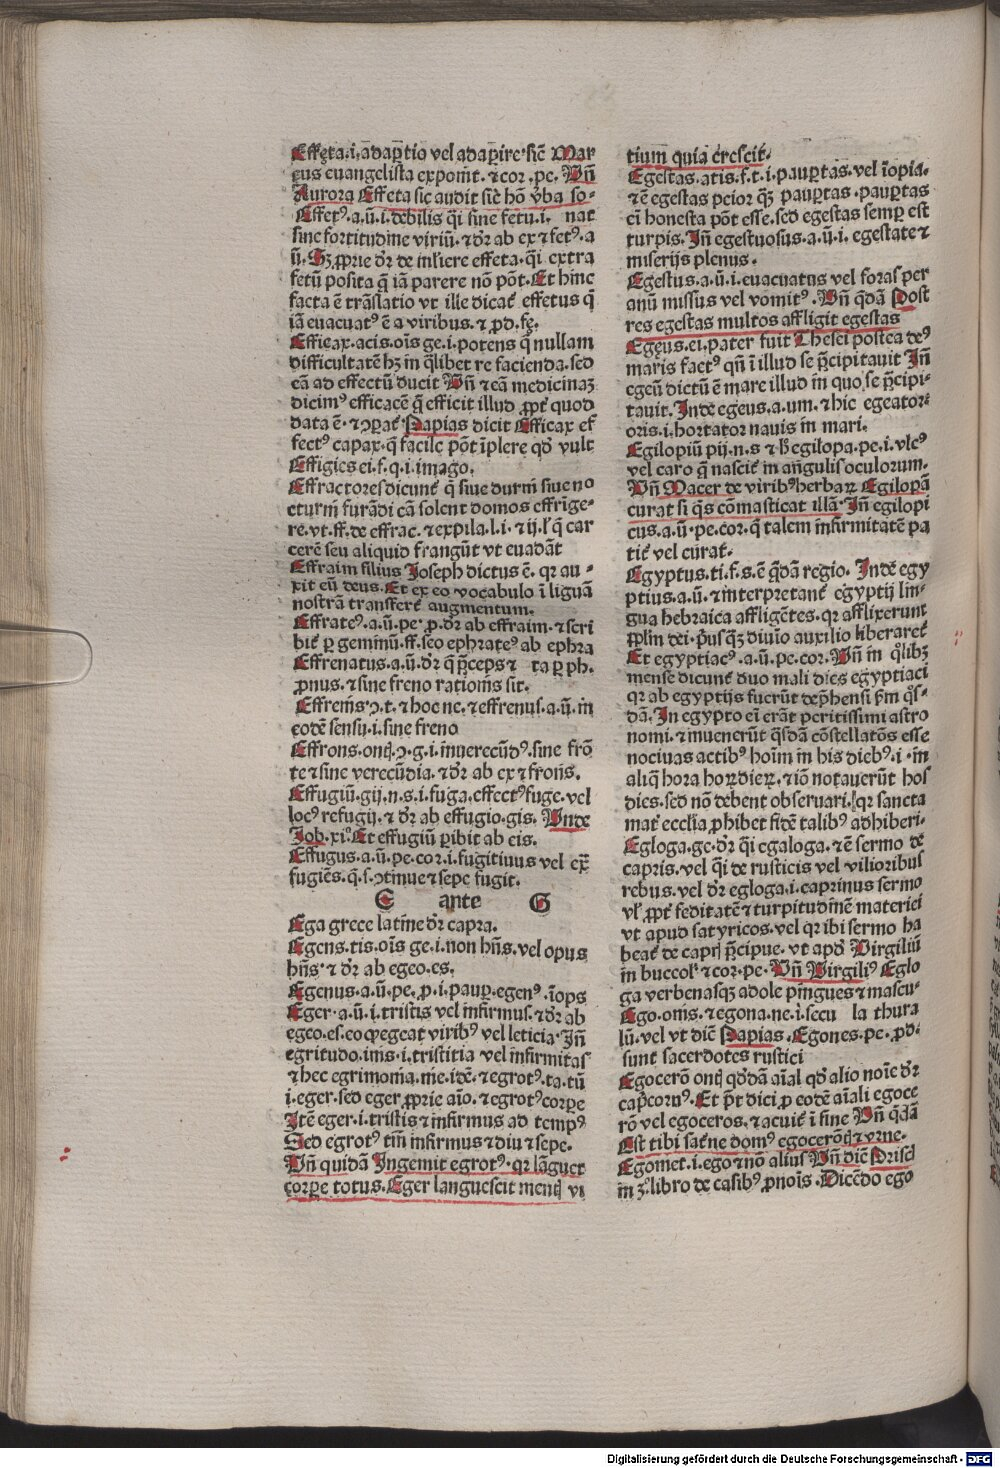 Effeta.i.adaꝑtio vel adaꝑire.sic̄ Mar
cus euangelista exponit. ⁊ cor .pe. Vn̄
Aurora Effeta sic audit sic̄ hō v̄ba so⸗
Effetꝰ.a.ū.i.debilis q̄i sine fetu.i. nat
sine fortitudine viriū. ⁊ dr̄ ab ex ⁊ fetꝰ.a
ū. Sꝫ ꝓprie dr̄ de mľiere effeta.q̄i extra
fetū posita q̄ iā parere nō pōt. Et hinc
facta ē trāslatio vt ille dicat̉ effetus q̄
iā euacuatꝰ ē a viribus. ⁊ ꝓd.fe.
Efficax.acis.oīs ge.i.potens q̄ nullam
difficultatē hꝫ in q̄libet re facienda.sed
eā ad effectū ducit Vn̄ ⁊ eā medicinaꝫ
dicimꝰ efficacē q̄ efficit illud ꝓpt̉ quod
data ē. ⁊ ↄꝑat̉ Papias dicit Efficax ef
fectꝰ capax.q̄ facile pōt īplere qď vult
Effigies ei.f.q.i.imago.
Effractores dicunt̉ q̄ siue durni siue no
cturni furādi cā solent domos effrige⸗
re.vt.ff.de effrac. ⁊ expila.l.i. ⁊ ij.ľ q̄ car
cerē seu aliquid frangūt vt euadāt
Effraim filius Joseph dictus ē. qr au⸗
xit eū deus. Et ex eo vocabulo ī liguā
nostrā transfert̉ augmentum.
Effratꝰ.a.ū.pe.ꝓ.dr̄ ab effraim. ⁊ scri
bit̉ ꝑ geminū.ff.seo ephratꝰ ab ephra
Effrenatus.a.ū.dr̄ q̄ p̄ceps ⁊ ta ꝑ ph.
ꝓnus. ⁊ sine freno rationis sit.
Effrenis ↄ.t. ⁊ hoc ne. ⁊ effrenus.a.ū.in
eodē sensu.i.sine freno
Effrons.ontꝭ.ↄ.g.i.inuerecūdꝰ.sine frō
te ⁊ sine verecūdia. ⁊ dr̄ ab ex ⁊ frons.
Effugiū.gij.n.s.i.fuga.effectꝰ fuge.vel
locꝰ refugij. ⁊ dr̄ ab effugio.gis. Vnde
Job.xi.° Et effugiū ꝑibit ab eis.
Effugus.a.ū.pe.cor.i.fugitiuus vel ex̄
fugiēs.q̄.s.ↄtinue ⁊ sepe fugit.
E ante G
Ega grece latine dr̄ capra.
Egens.tis.oīs ge.i.non hn̄s.vel opus
hn̄s. ⁊ dr̄ ab egeo.es.
Egenus.a.ū.pe.ꝓ.i.pauꝑ.egenꝰ.īops
Eger.a.ū.i.tristis vel infirmus. ⁊ dr̄ ab
egeo.es.eo ꝙ egeat viribꝰ vel leticia. In̄
egritudo.inis.i.tristitia vel infirmitas
⁊ hec egrimonia.nie.idē. ⁊ egrotꝰ.ta.tū
i.eger.sed eger ꝓprie aīo. ⁊ egrotꝰ corpe
Itē eger.i.tristis ⁊ infirmus ad tempꝰ
Sed egrotꝰ tm̄ infirmus ⁊ diu ⁊ sepe.
Vn̄ quidā Ingemit egrotꝰ.qr lāguet
corpe totus. Eger languescit mentꝭ vi
tium quia crescit.
Egestas.atis.f.t.i.pauꝑtas.vel īopia.
⁊ ē egestas peior q̄ꝫ pauꝑtas.pauꝑtas
eī honesta pōt esse.sed egestas semꝑ est
turpis. In̄ egestuosus.a.ū.i.egestate ⁊
miserijs plenus.
Egestus.a.ū.i.euacuatus vel foras per
anū missus vel vomitꝰ. Vn̄ q̄dā Post
res egestas multos affligit egestas
Egeus.ei.pater fuit Thesei postea deꝰ
maris factꝰ qn̄ ī illud se p̄cipitauit In̄
egeū dictū ē mare illud in quo se p̄cipi⸗
tauit. Inde egeus.a.um. ⁊ hic egeator
oris.i.hortator nauis in mari.
Egilopiū pij.n.s ⁊ h̉ egilopa.pe.i.vlcꝰ
vel caro q̄ nascit̉ in angulis oculorum.
Vn̄ Macer de viribꝰ herbaꝝ Egilopā
curat si q̄s cōmasticat illā. In̄ egilopi
cus.a.ū.pe.cor.q̄ talem infirmitatē pa
tit̉ vel curat.
Egyptus.ti.f.s.ē q̄dā regio. Inde egy
ptius.a.ū. ⁊ interpretant̉ egyptij lin⸗
gua hebraica affligētes.qr afflixerunt
ppľm dei.p̄usq̄ꝫ diuīo auxilio liberaret̉
Et egyptiacꝰ.a.ū.pe.cor. Vn̄ in q̄libꝫ
mense dicunt̉ duo mali dies egyptiaci
qr ab egyptijs fuerūt dep̄hensi ẜm q̄s⸗
dā. In egypto eī erāt peritissimi astro
nomi. ⁊ inuenerūt q̄sdā cōstellatōs esse
nociuas actibꝰ hoīm in his diebꝰ.i.in
aliq̄ hora hoꝝ dieꝝ. ⁊ iō notauerūt hos
dies.sed nō debent obseruari.qr sancta
mat̉ eccľia ꝓhibet fidē talibꝰ adhiberi.
Egloga.ge.dr̄ q̄i egaloga. ⁊ ē sermo de
capris.vel q̄i de rusticis vel vilioribus
rebus.vel dr̄ egloga.i.caprinus sermo
vľ ꝓpt̉ feditatē ⁊ turpitudinē materiei
vt apud satyricos.vel qr ibi sermo ha
beat̉ de caprꝭ p̄cipue.vt apď Virgiliū
in buccoľ ⁊ cor.pe. Vn̄ Virgiliꝰ Eglo
ga verbenasqꝫ adole pingues ⁊ mascu⸗
Ego.onis. ⁊ egona.ne.i.secu la thura
lū.vel vt dic̄ Papias. Egones.pe.ꝓd.
sunt sacerdotes rustici
Egocerō ontꝭ qďdā aīal qď alio noīe dr̄
capcornꝰ. Et p̄t dici ꝓ eodē aīali egoce
rō vel egoceros. ⁊ acuit̉ ī fine Vn̄ q̄dā
Est tibi sat̉ne domꝰ egocerōtꝭ ⁊ vrne.
Egomet.i.ego ⁊ nō alius Vn̄ dic̄ Priscꝭ
in ʒ°.libro de casibꝰ ꝓnoīs. Dicēdo ego
Digitalisierung gefördert durch die Deutsche Forschungsgemeinschaft - DFG